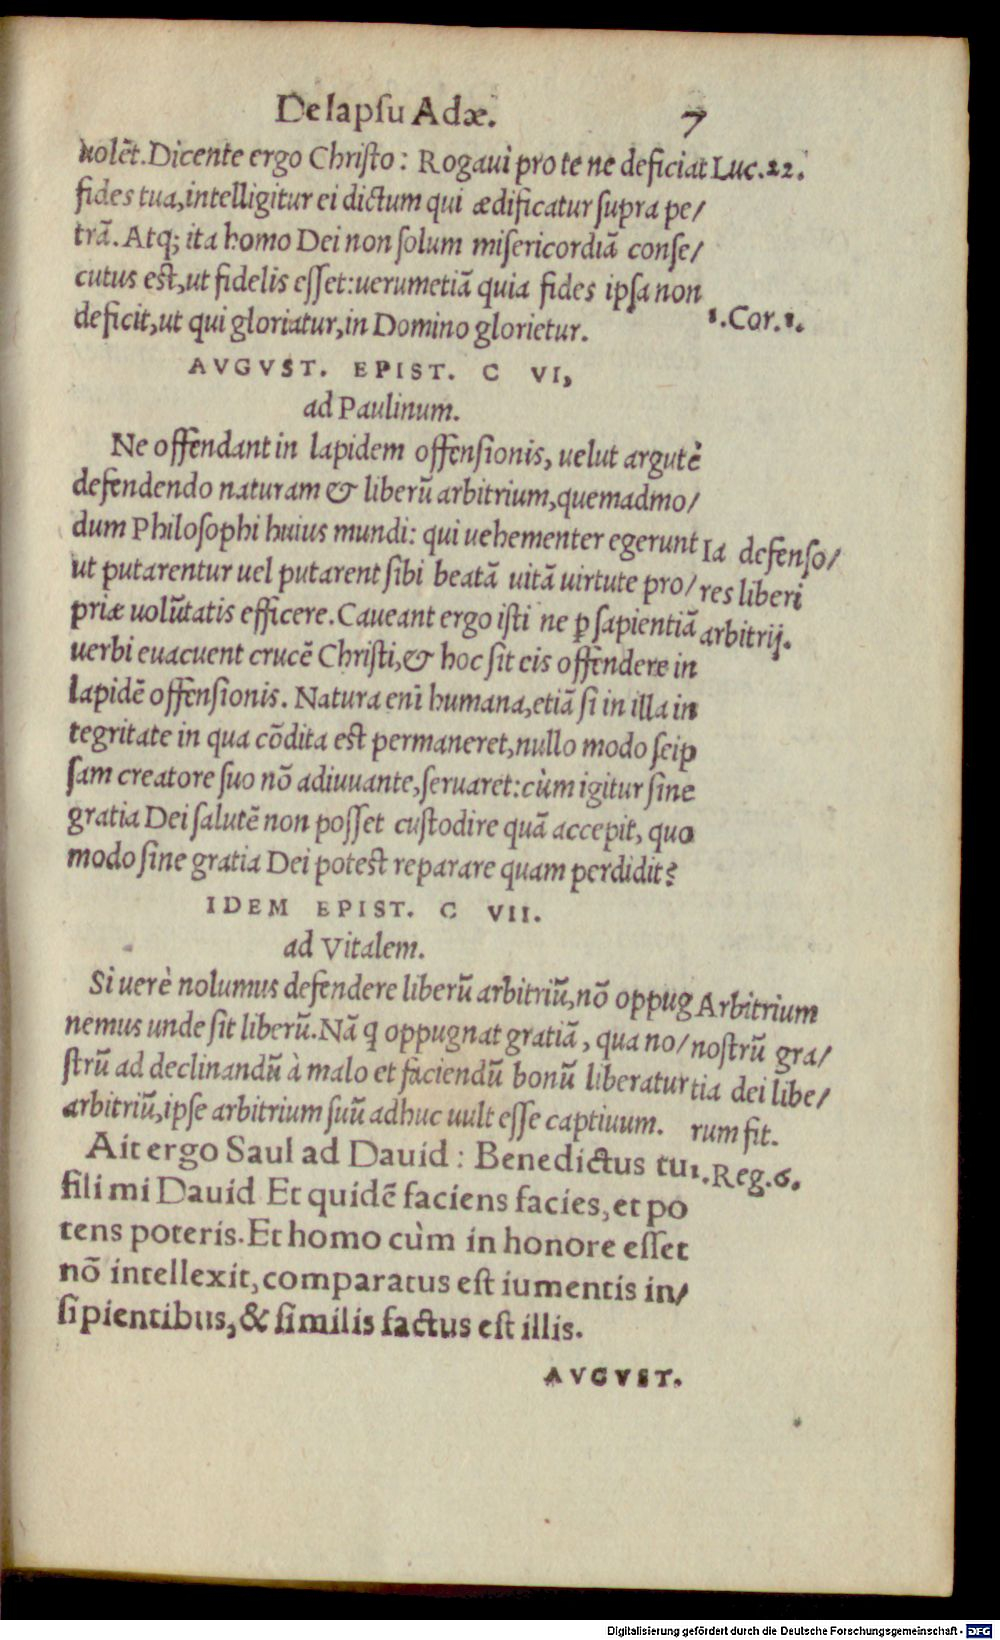 De lapsu Adæ. 7
uolẽt. Dicente ergo Christo: Rogaui pro te ne deficiat Luc. 22.
fides tua, intelligitur ei dictum qui ædificatur supra pe/
trã. Atq; ita homo Dei non solum misericordiã conse/
cutus est, ut fidelis esset: uerumetiã quia fides ipsa non
deficit, ut qui gloriatur, in Domino glorietur. 1. Cor. 1.
AVGVST. EPIST. C VI,
ad Paulinum.
Ne offendant in lapidem offensionis, uelut argutè
defendendo naturam & liberũ arbitrium, quemadmo/
dum Philosophi huius mundi: qui uehementer egerunt Ia defenso/
ut putarentur uel putarent sibi beatã uitã uirtute pro/ res liberi
priæ uolũtatis efficere. Caueant ergo isti ne ꝑ sapientiã arbitrij.
uerbi euacuent crucẽ Christi, & hoc sit eis offendere in
lapidẽ offensionis. Natura enĩ humana, etiã si in illa in
tegritate in qua cõdita est permaneret, nullo modo seip
sam creatore suo nõ adiuuante, seruaret: cùm igitur sine
gratia Dei salutẽ non posset custodire quã accepit, quo
modo sine gratia Dei potest reparare quam perdidit?
IDEM EPIST. C VII.
ad Vitalem.
Si uerè nolumus defendere liberũ arbitriũ, nõ oppug Arbitrium
nemus unde sit liberũ. Nã q̃ oppugnat gratiã, qua no/ nostrũ gra/
strũ ad declinandũ à malo et faciendũ bonũ liberatur tia dei libe/
arbitriũ, ipse arbitrium suũ adhuc uult esse captiuum. rum fit.
Ait ergo Saul ad Dauid: Benedictus tu 1. Reg. 6.
fili mi Dauid Et quidẽ faciens facies, et po
tens poteris. Et homo cùm in honore esset
nõ intellexit, comparatus est iumentis in/
sipientibus, & similis factus est illis.
AVGVST.
Digitalisierung gefördert durch die Deutsche Forschungsgemeinschaft - DFG